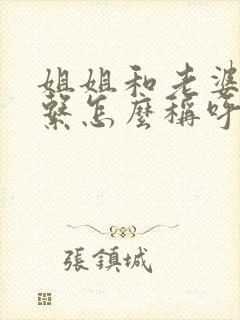 姐姐和老婆
繫怎麼稱呼
張鎮城